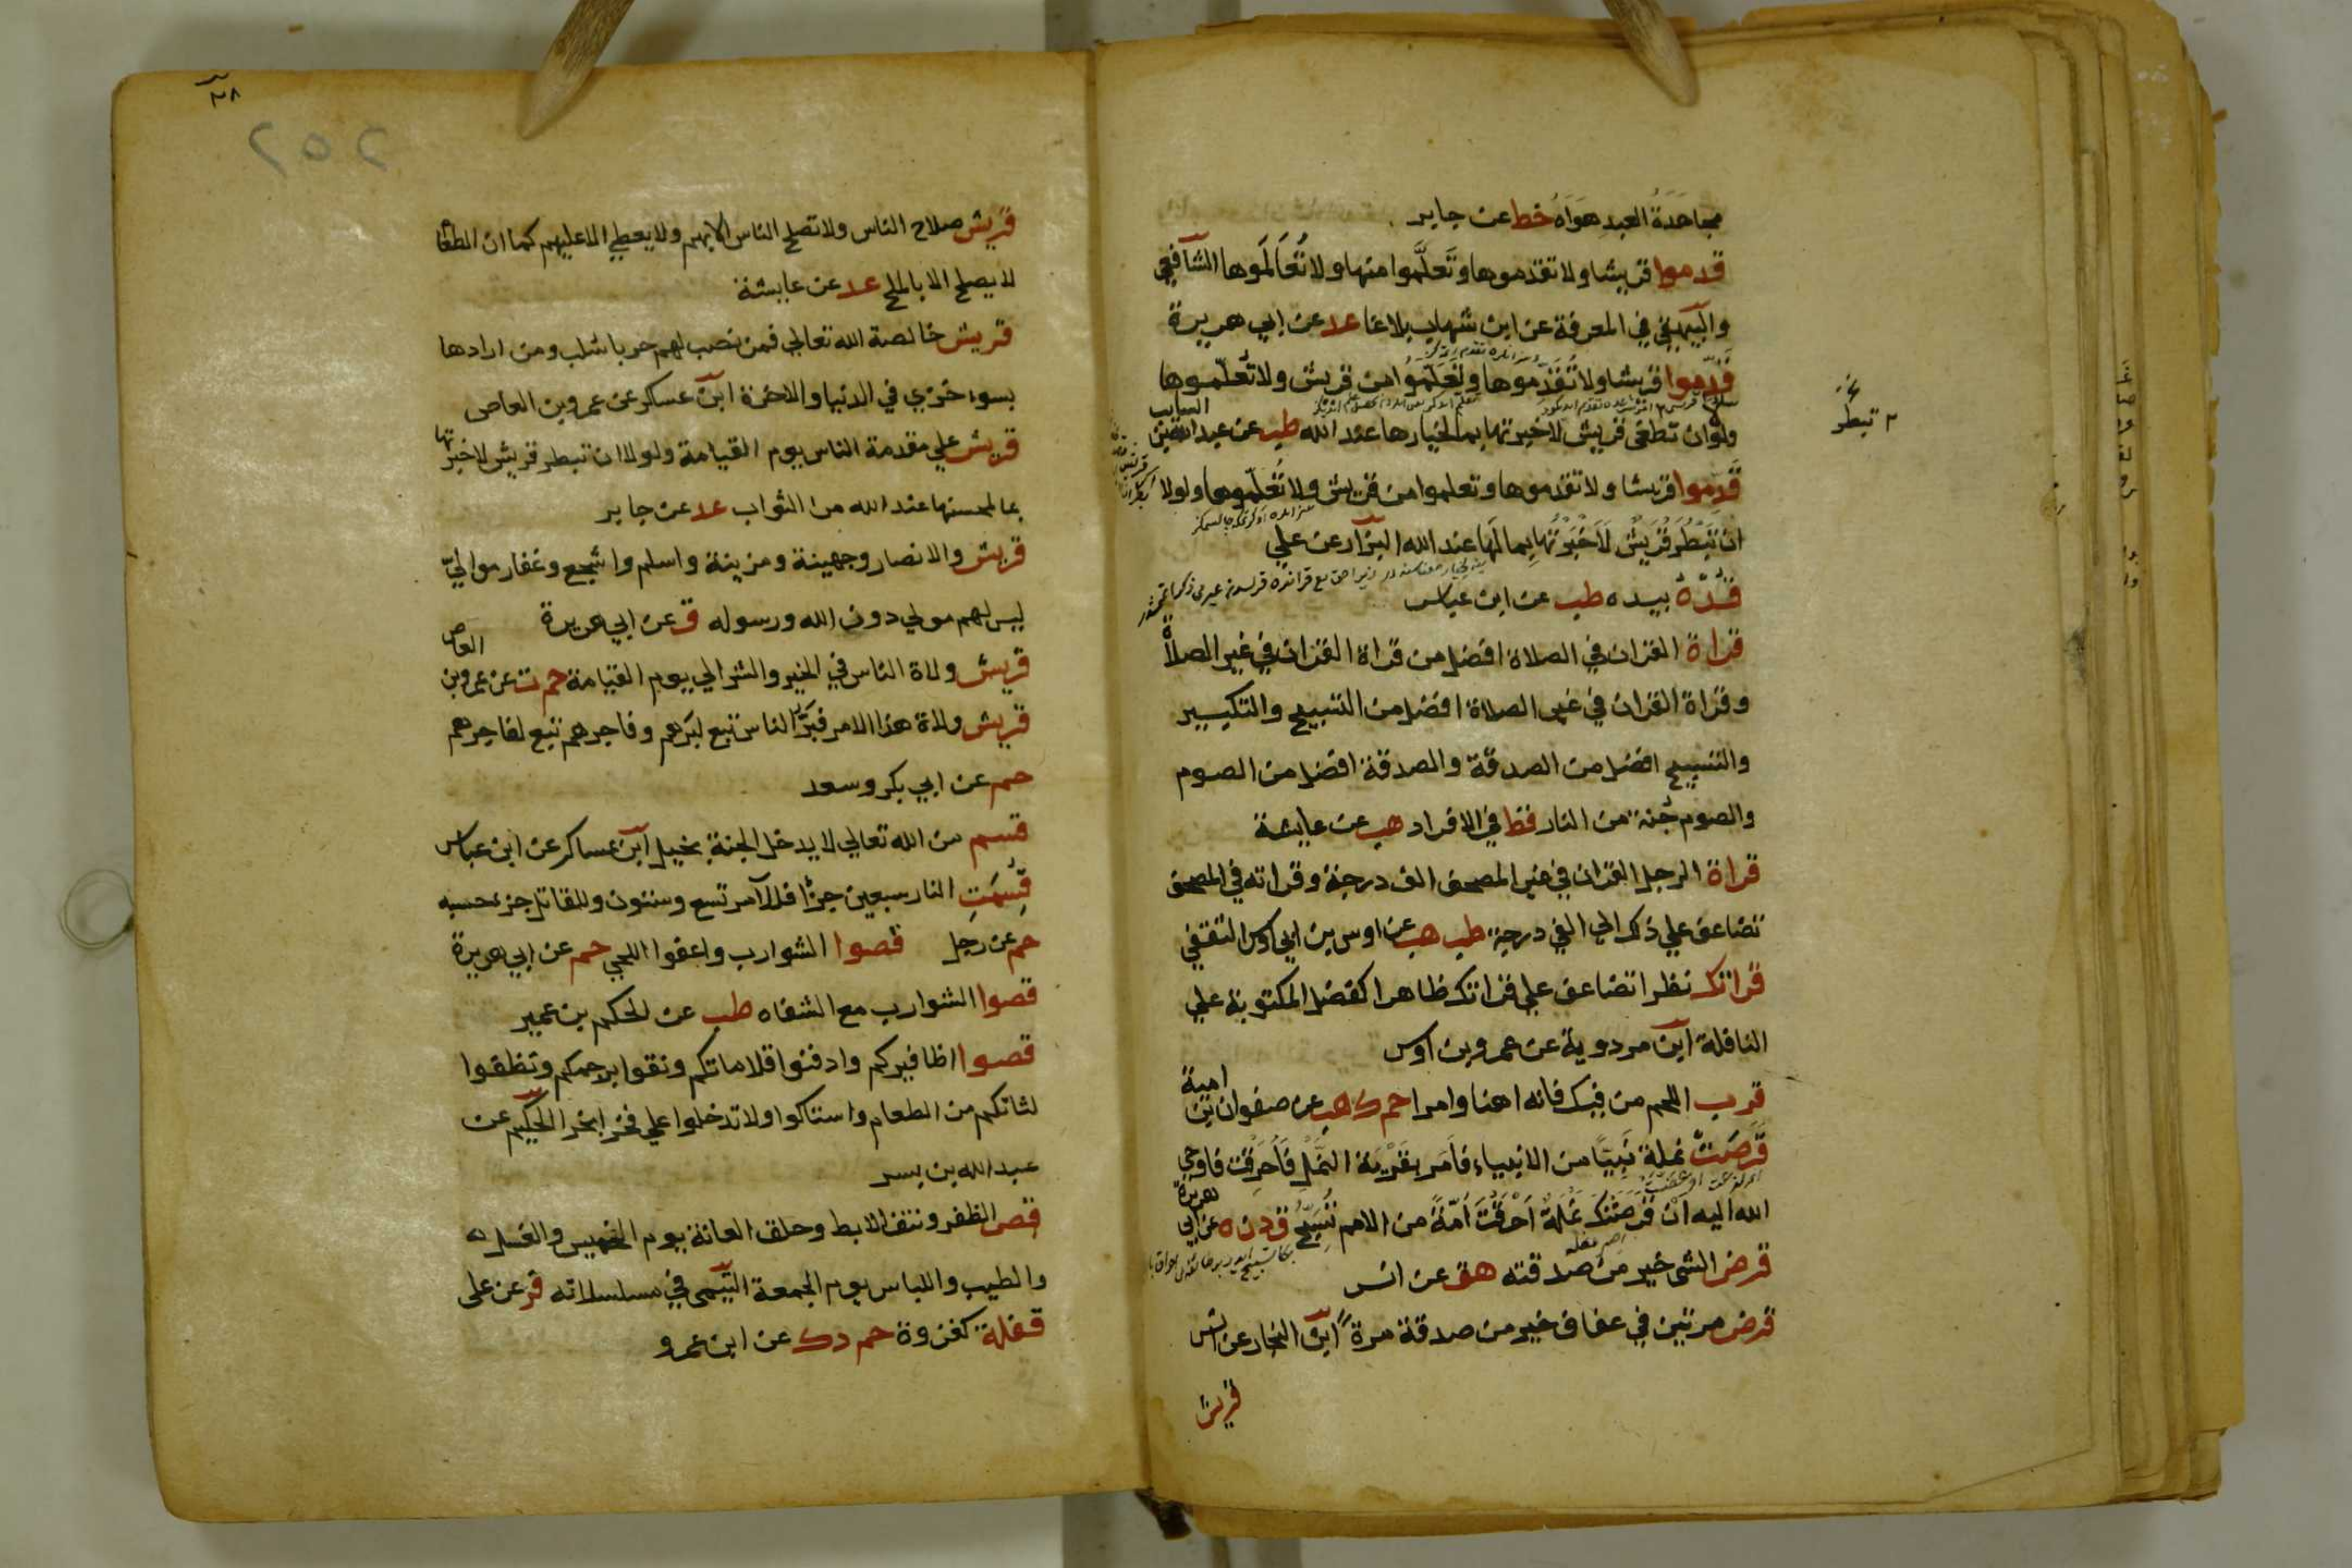 مجاهدة العبد هواه خط عن جابر
قدموا قريشا ولا تقدموها وتعلموا منها ولا تعالموها الشافعي
والبيهقي في المعرفة عن ابن شهاب بلاغا عد عن ابي هريرة
قدموا قريشا ولا تقدموها وتعلموا من قريش ولا تعلموها
ولو ان تطغي قريش لاخبرتها بما لخيارها عند الله طب عن عبد الله بن
السايب
قدموا قريشا ولا تقدموها وتعلموا من قريش ولا تعلموها ولولا
ان تبطر قريش لاخبرتها بما لها عند الله البزار عن علي
م تبطر
قده بيده طب عن ابن عباس
قراة القران في الصلاة افضل من قراة القران في غير الصلاة
وقراة القران في غير الصلاة افضل من التسبيح والتكبير
والتسبيح افضل من الصدقة والصدقة افضل من الصوم
والصوم جنة من النار قط في الافراد هب عن عايشة
قراة الرجل القران في غير المصحف الف درجة وقراته في المصحف
تضاعف علي ذلك الي الفي درجة طب هب عن اوس بن ابي اوس الثقفي
قراتك نظرا تضاعف علي قراتك ظاهرا كفضل المكتوبة علي
النافلة ابن مردوية عن عمرو بن اوس
قرب اللحم من فيك فانه اهنا وامرا حم ك هب عن صفوان بن
امية
قرصت نملة نبيا من الانبياء فامر بقرية النمل فاحرقت فاوحي
الله اليه ان قرصتك نملة احرقت امة من الامم تسبح ق د ن ه عن ابي
هريرة
قرض الشي خير من صدقته هق عن انس
قرض مرتين في عفاف خير من صدقة مرة ابن النجار عن انس
قريش
٢٥٢
قريش صلاح الناس ولا تصلح الناس الا بهم ولا يعطي الا عليهم كما ان الطعام
لا يصلح الا بالملح عد عن عايشة
قريش خالصة الله تعالي فمن نصب لهم حربا سلب ومن ارادها
بسوء خزي في الدنيا والاخرة ابن عساكر عن عمرو بن العاص
قريش علي مقدمة الناس يوم القيامة ولولا ان تبطر قريش لاخبرتها
بما لمحسنها عند الله من الثواب عد عن جابر
قريش والانصار وجهينة ومزينة واسلم واشجع وغفار موالي
ليس لهم مولي دون الله ورسوله ق عن ابي هريرة
قريش ولاة الناس في الخير والشر الي يوم القيامة حم ت عن عمرو بن
العاص
قريش ولاة هذا الامر فبر الناس تبع لبرهم وفاجرهم تبع لفاجرهم
حم عن ابي بكر وسعد
قسم من الله تعالي لا يدخل الجنة بخيل ابن عساكر عن ابن عباس
قسمت النار سبعين جزءا فللآمر تسع وستون وللقاتل جزء حسبه
حم عن رجل قصوا الشوارب واعفوا اللحي حم عن ابي هريرة
قصوا الشوارب مع الشفاه طب عن الحكم بن عمير
قصوا اظافيركم وادفنوا قلاماتكم ونقوا براجمكم وتظفوا
لثاتكم من الطعام واستاكوا ولا تدخلوا علي فخرا بخرا الحكيم عن
عبد الله بن بسر
قص الظفر ونتف الابط وحلق العانة يوم الخميس والغسل
والطيب واللباس يوم الجمعة التيمي في مسلسلاته فر عن علي
قفلة كغزوة حم د ك عن ابن عمرو